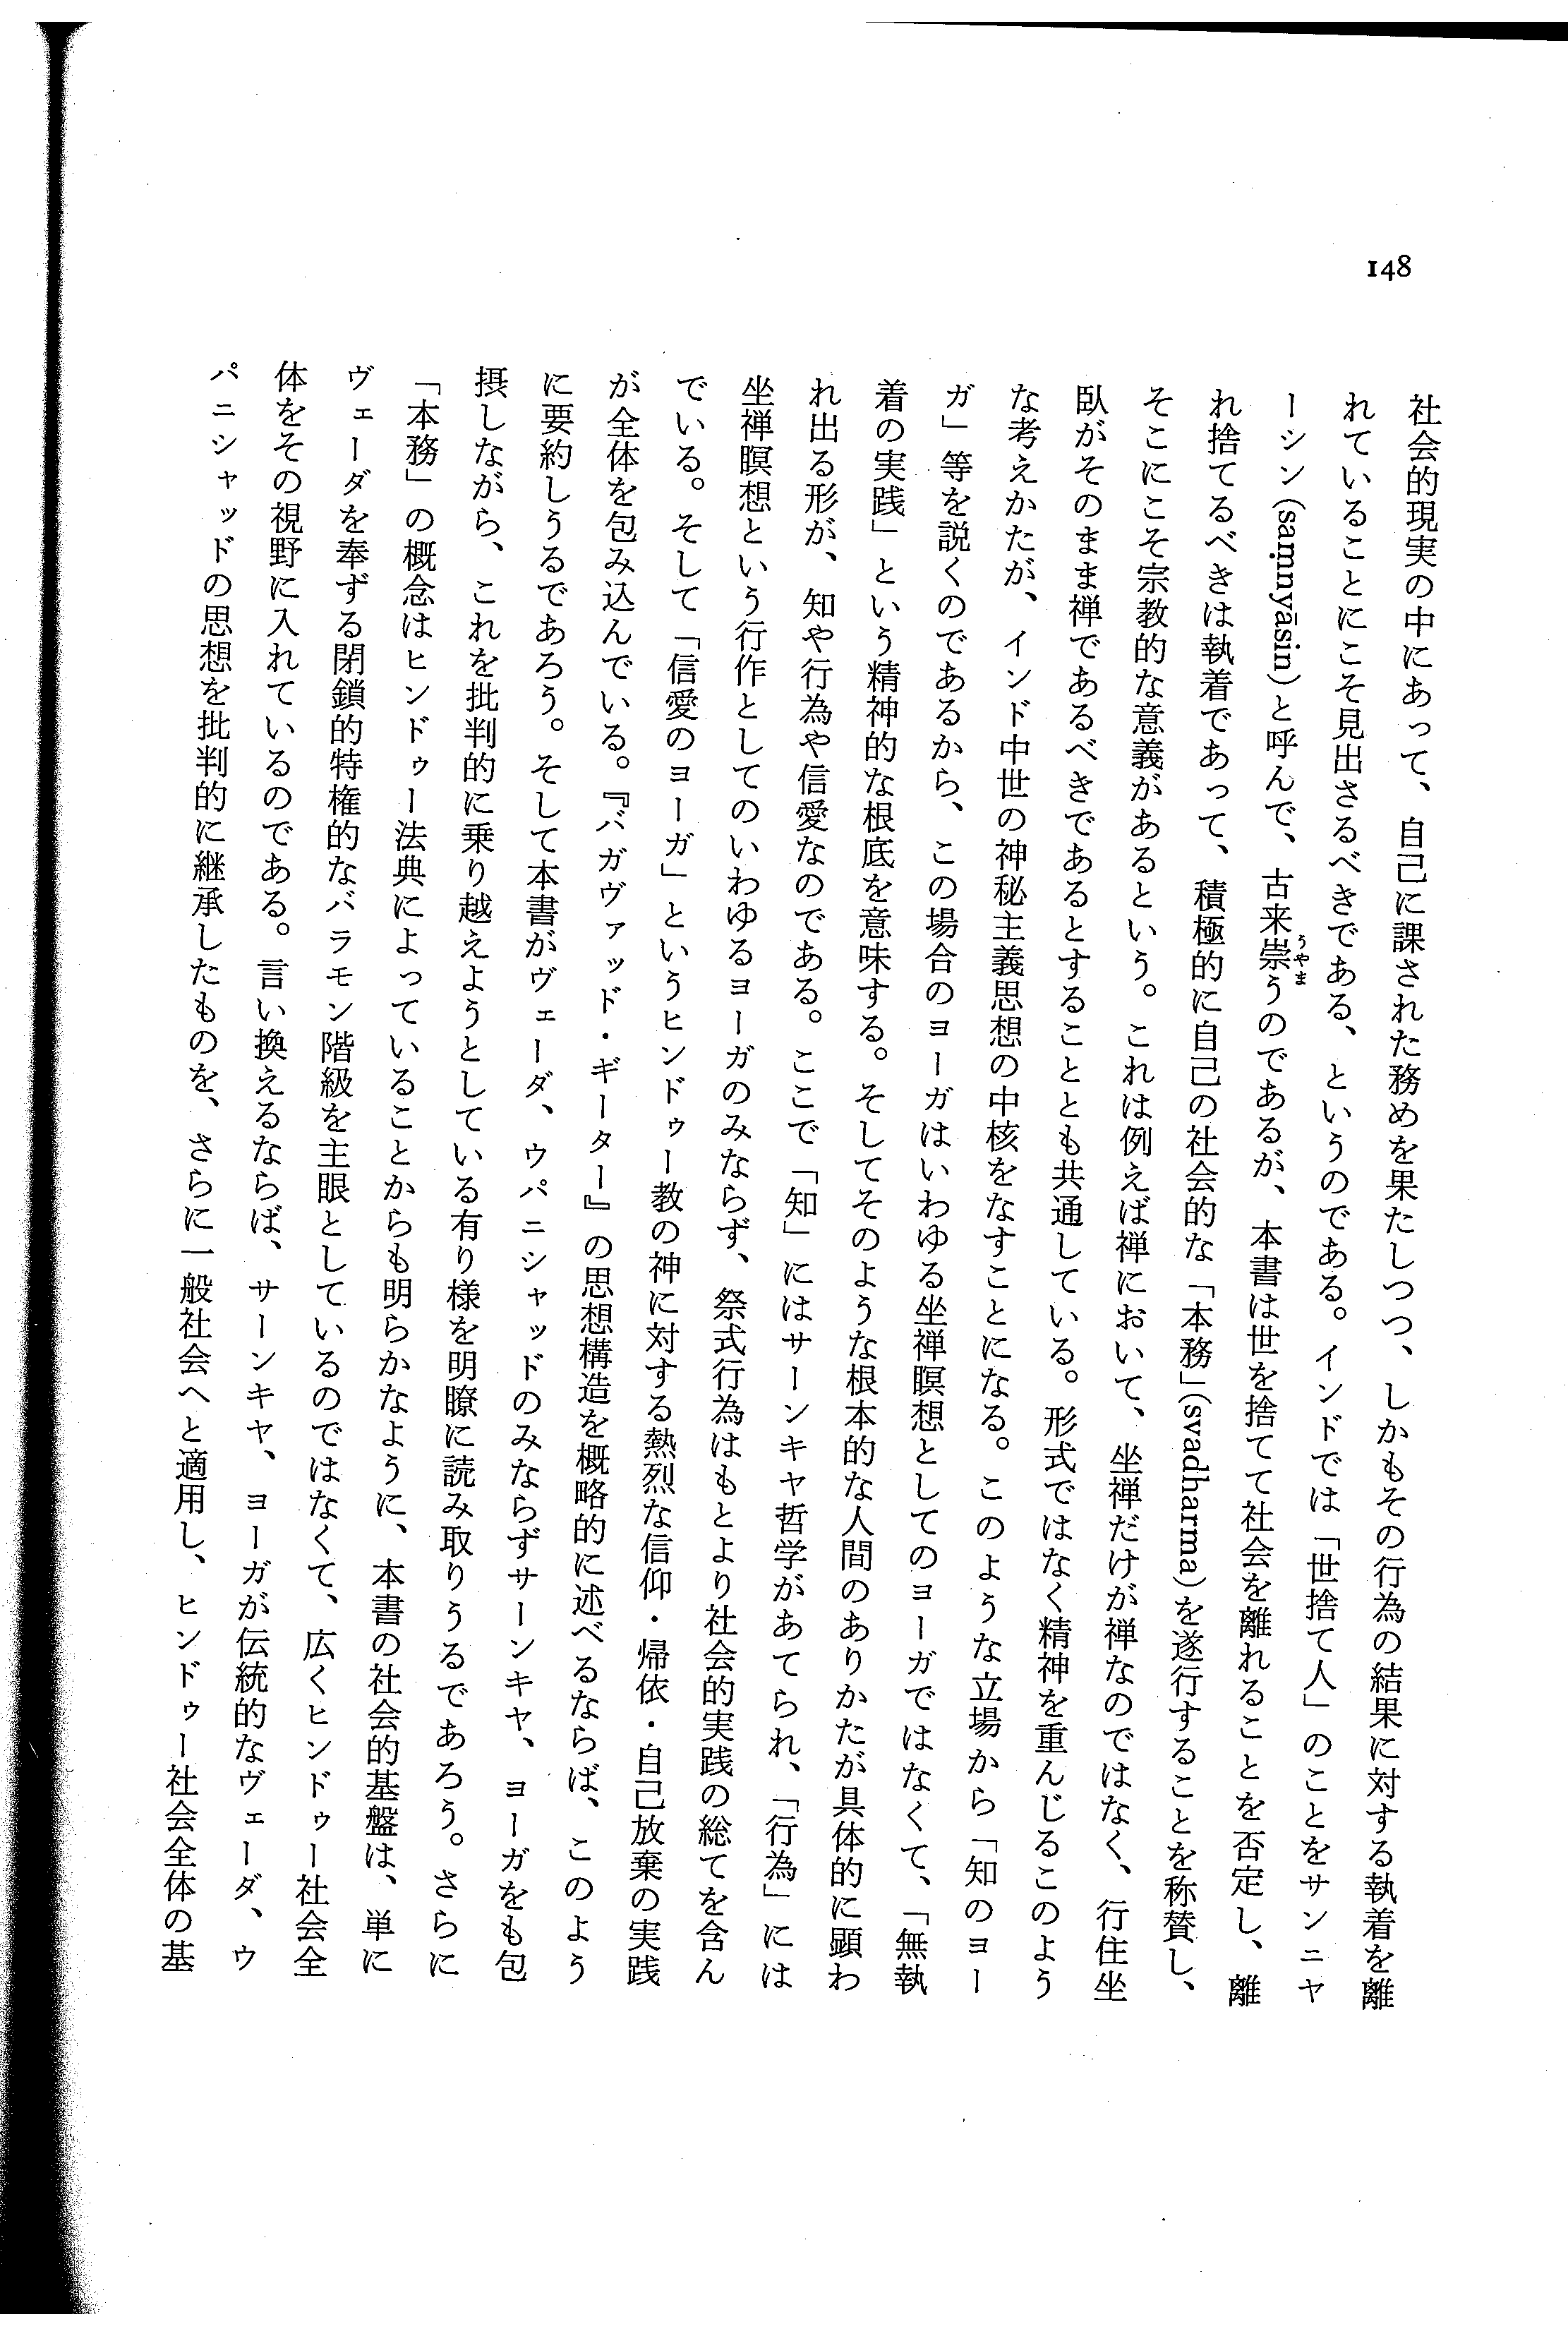 148
社会的現実の中にあって、自己に課された務めを果たしつつ、しかもその行為の結果に対する執着を離
れていることにこそ見出さるべきである、というのである。インドでは「世捨て人」のことをサンニヤ
ーシン(saṃnyāsin)と呼んで、古来崇うのであるが、本書は世を捨てて社会を離れることを否定し、離
うやま
れ捨てるべきは執着であって、積極的に自己の社会的な「本務」(svadharma)を遂行することを称賛し、
そこにこそ宗教的な意義があるという。これは例えば禅において、坐禅だけが禅なのではなく、行住坐
臥がそのまま禅であるべきであるとすることとも共通している。形式ではなく精神を重んじるこのよう
な考えかたが、インド中世の神秘主義思想の中核をなすことになる。このような立場から「知のヨー
ガ」等を説くのであるから、この場合のヨーガはいわゆる坐禅瞑想としてのヨーガではなくて、「無執
着の実践」という精神的な根底を意味する。そしてそのような根本的な人間のありかたが具体的に顕わ
れ出る形が、知や行為や信愛なのである。ここで「知」にはサーンキヤ哲学があてられ、「行為」には
坐禅瞑想という行作としてのいわゆるヨーガのみならず、祭式行為はもとより社会的実践の総てを含ん
でいる。そして「信愛のヨーガ」というヒンドゥー教の神に対する熱烈な信仰・帰依・自己放棄の実践
が全体を包み込んでいる。『バガヴァッド・ギーター』の思想構造を概略的に述べるならば、このよう
に要約しうるであろう。そして本書がヴェーダ、ウパニシャッドのみならずサーンキヤ、ヨーガをも包
摂しながら、これを批判的に乗り越えようとしている有り様を明瞭に読み取りうるであろう。さらに
「本務」の概念はヒンドゥー法典によっていることからも明らかなように、本書の社会的基盤は、単に
ヴェーダを奉ずる閉鎖的特権的なバラモン階級を主眼としているのではなくて、広くヒンドゥー社会全
体をその視野に入れているのである。言い換えるならば、サーンキヤ、ヨーガが伝統的なヴェーダ、ウ
パニシャッドの思想を批判的に継承したものを、さらに一般社会へと適用し、ヒンドゥー社会全体の基